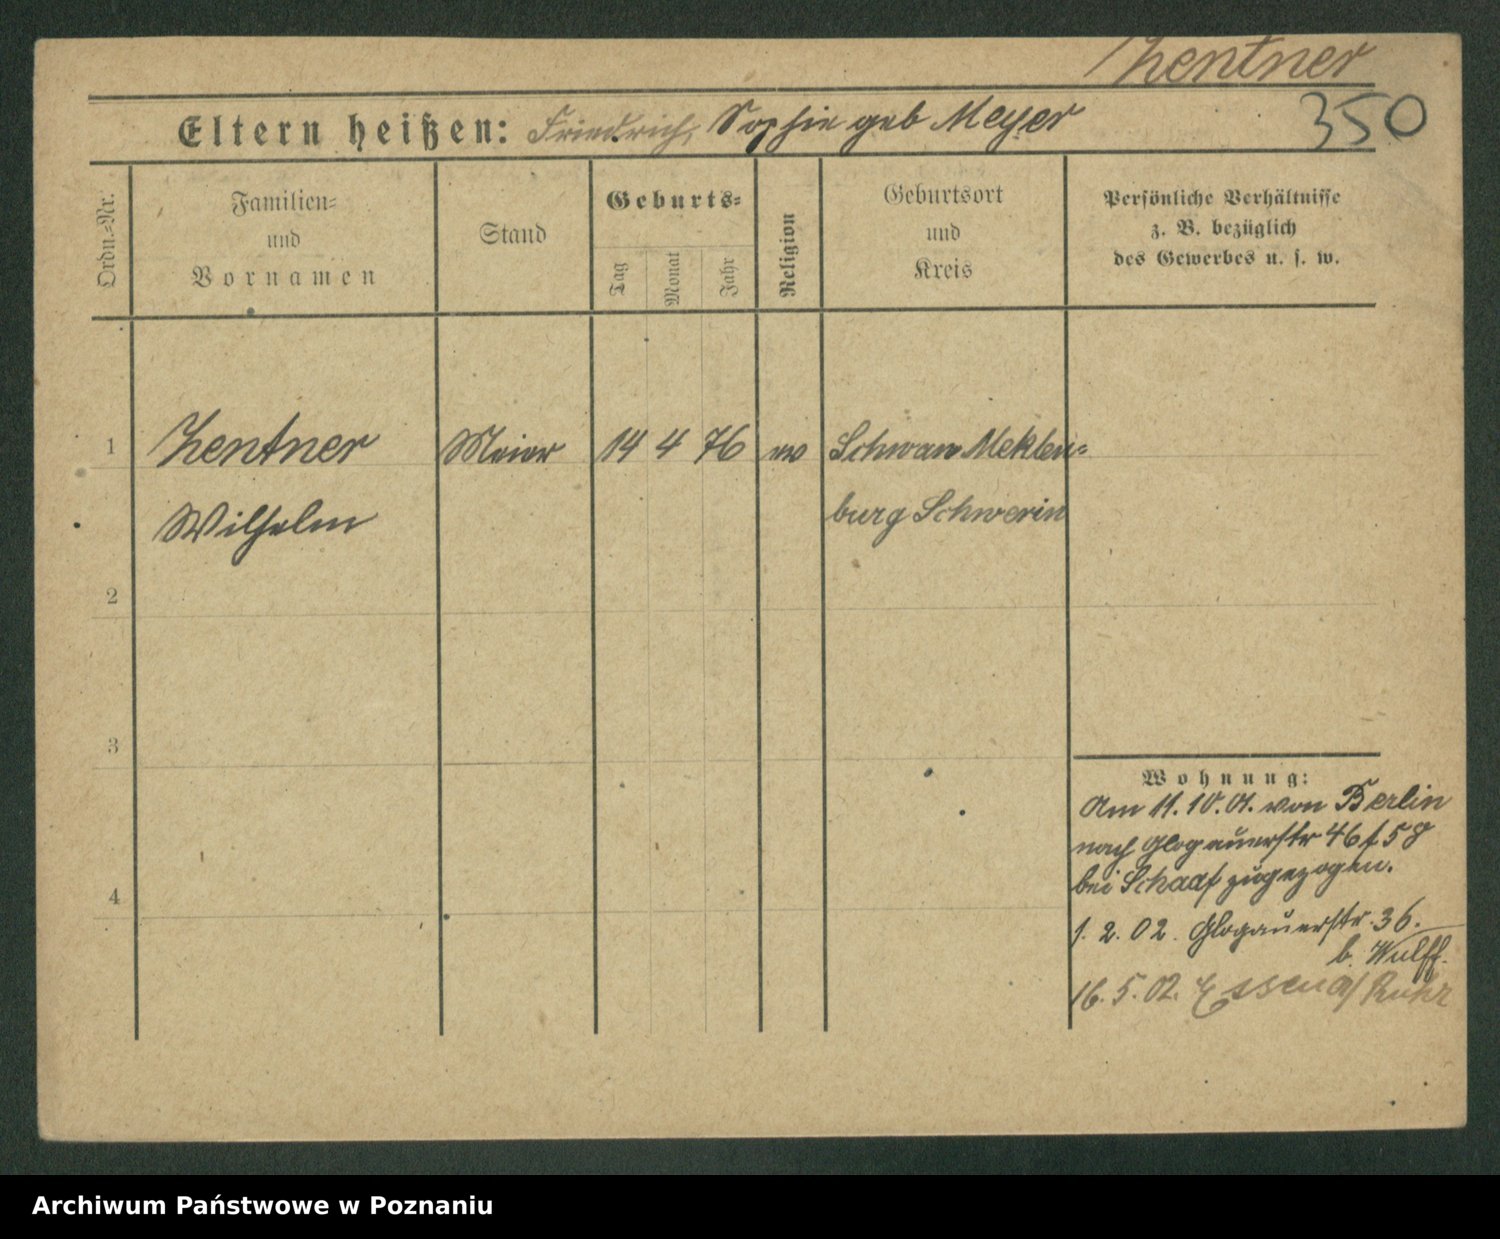 Zentner
350
Eltern heißen: Friedrich, Sophie geb Meyer
Ordn.=Nr.
Familien=
und
Vornamen
Stand
Geburts=
Tag
Monat
Jahr
Religion
Geburtsort
und
Kreis
Persönliche Verhältnisse
z. B. bezüglich
des Gewerbes u. s. w.
1 Zentner Meier 14 4 76 ev Schwan Meklen=
Wilhelm burg Schwerin
2
3
4
Wohnung:
Am 11.10.01. von Berlin
nach Glogauerstr 46 58
bei Schaaf zugezogen.
1. 2. 02. Glogauerstr. 36.
b. Wulff.
16. 5. 02. Essen a/ Ruhr
Archiwum Państwowe w Poznaniu